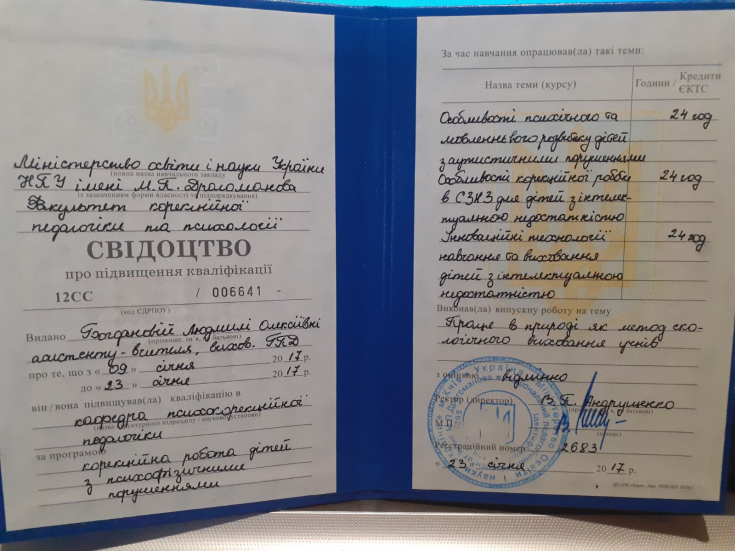 Міністерство освіти і науки України
(повна назва навчального закладу
НПУ імені М.П. Драгоманова
із зазначенням форми власності та підпорядкування)
Факультет корекційної
педагогіки та психології
СВІДОЦТВО
про підвищення кваліфікації
12СС / 006641 -
(код ЄДРПОУ)
Видано Богдановій Людмилі Олексіївні
(прізвище, ім'я, по батькові)
асистенту-вчителя, вихов. ГПД
про те, що з « 09 » січня 2017 р.
до « 23 » січня 2017 р.
він / вона підвищував(ла) кваліфікацію в
кафедра психокорекційної
педагогіки
за програмою
корекційна робота дітей
з психофізичними
порушеннями
За час навчання опрацював(ла) такі теми:
Назва теми (курсу) Години / Кредити ЄКТС
Особливості психічного та 24 год
мовленнєвого розвитку дітей
з аутистичними порушеннями
Особливості корекційної роботи 24 год
в СЗНЗ для дітей з інтелек-
туальною недостатністю
Інноваційні технології 24 год
навчання та виховання
дітей з інтелектуальною
недостатністю
Виконав(ла) випускну роботу на тему
Праця в природі як метод еко-
логічного виховання учнів
з оцінкою відмінно
Ректор (директор) В.П. Андрущенко
М.П.
(підпис)
Реєстраційний номер 2683
« 23 » січня 2017 р.